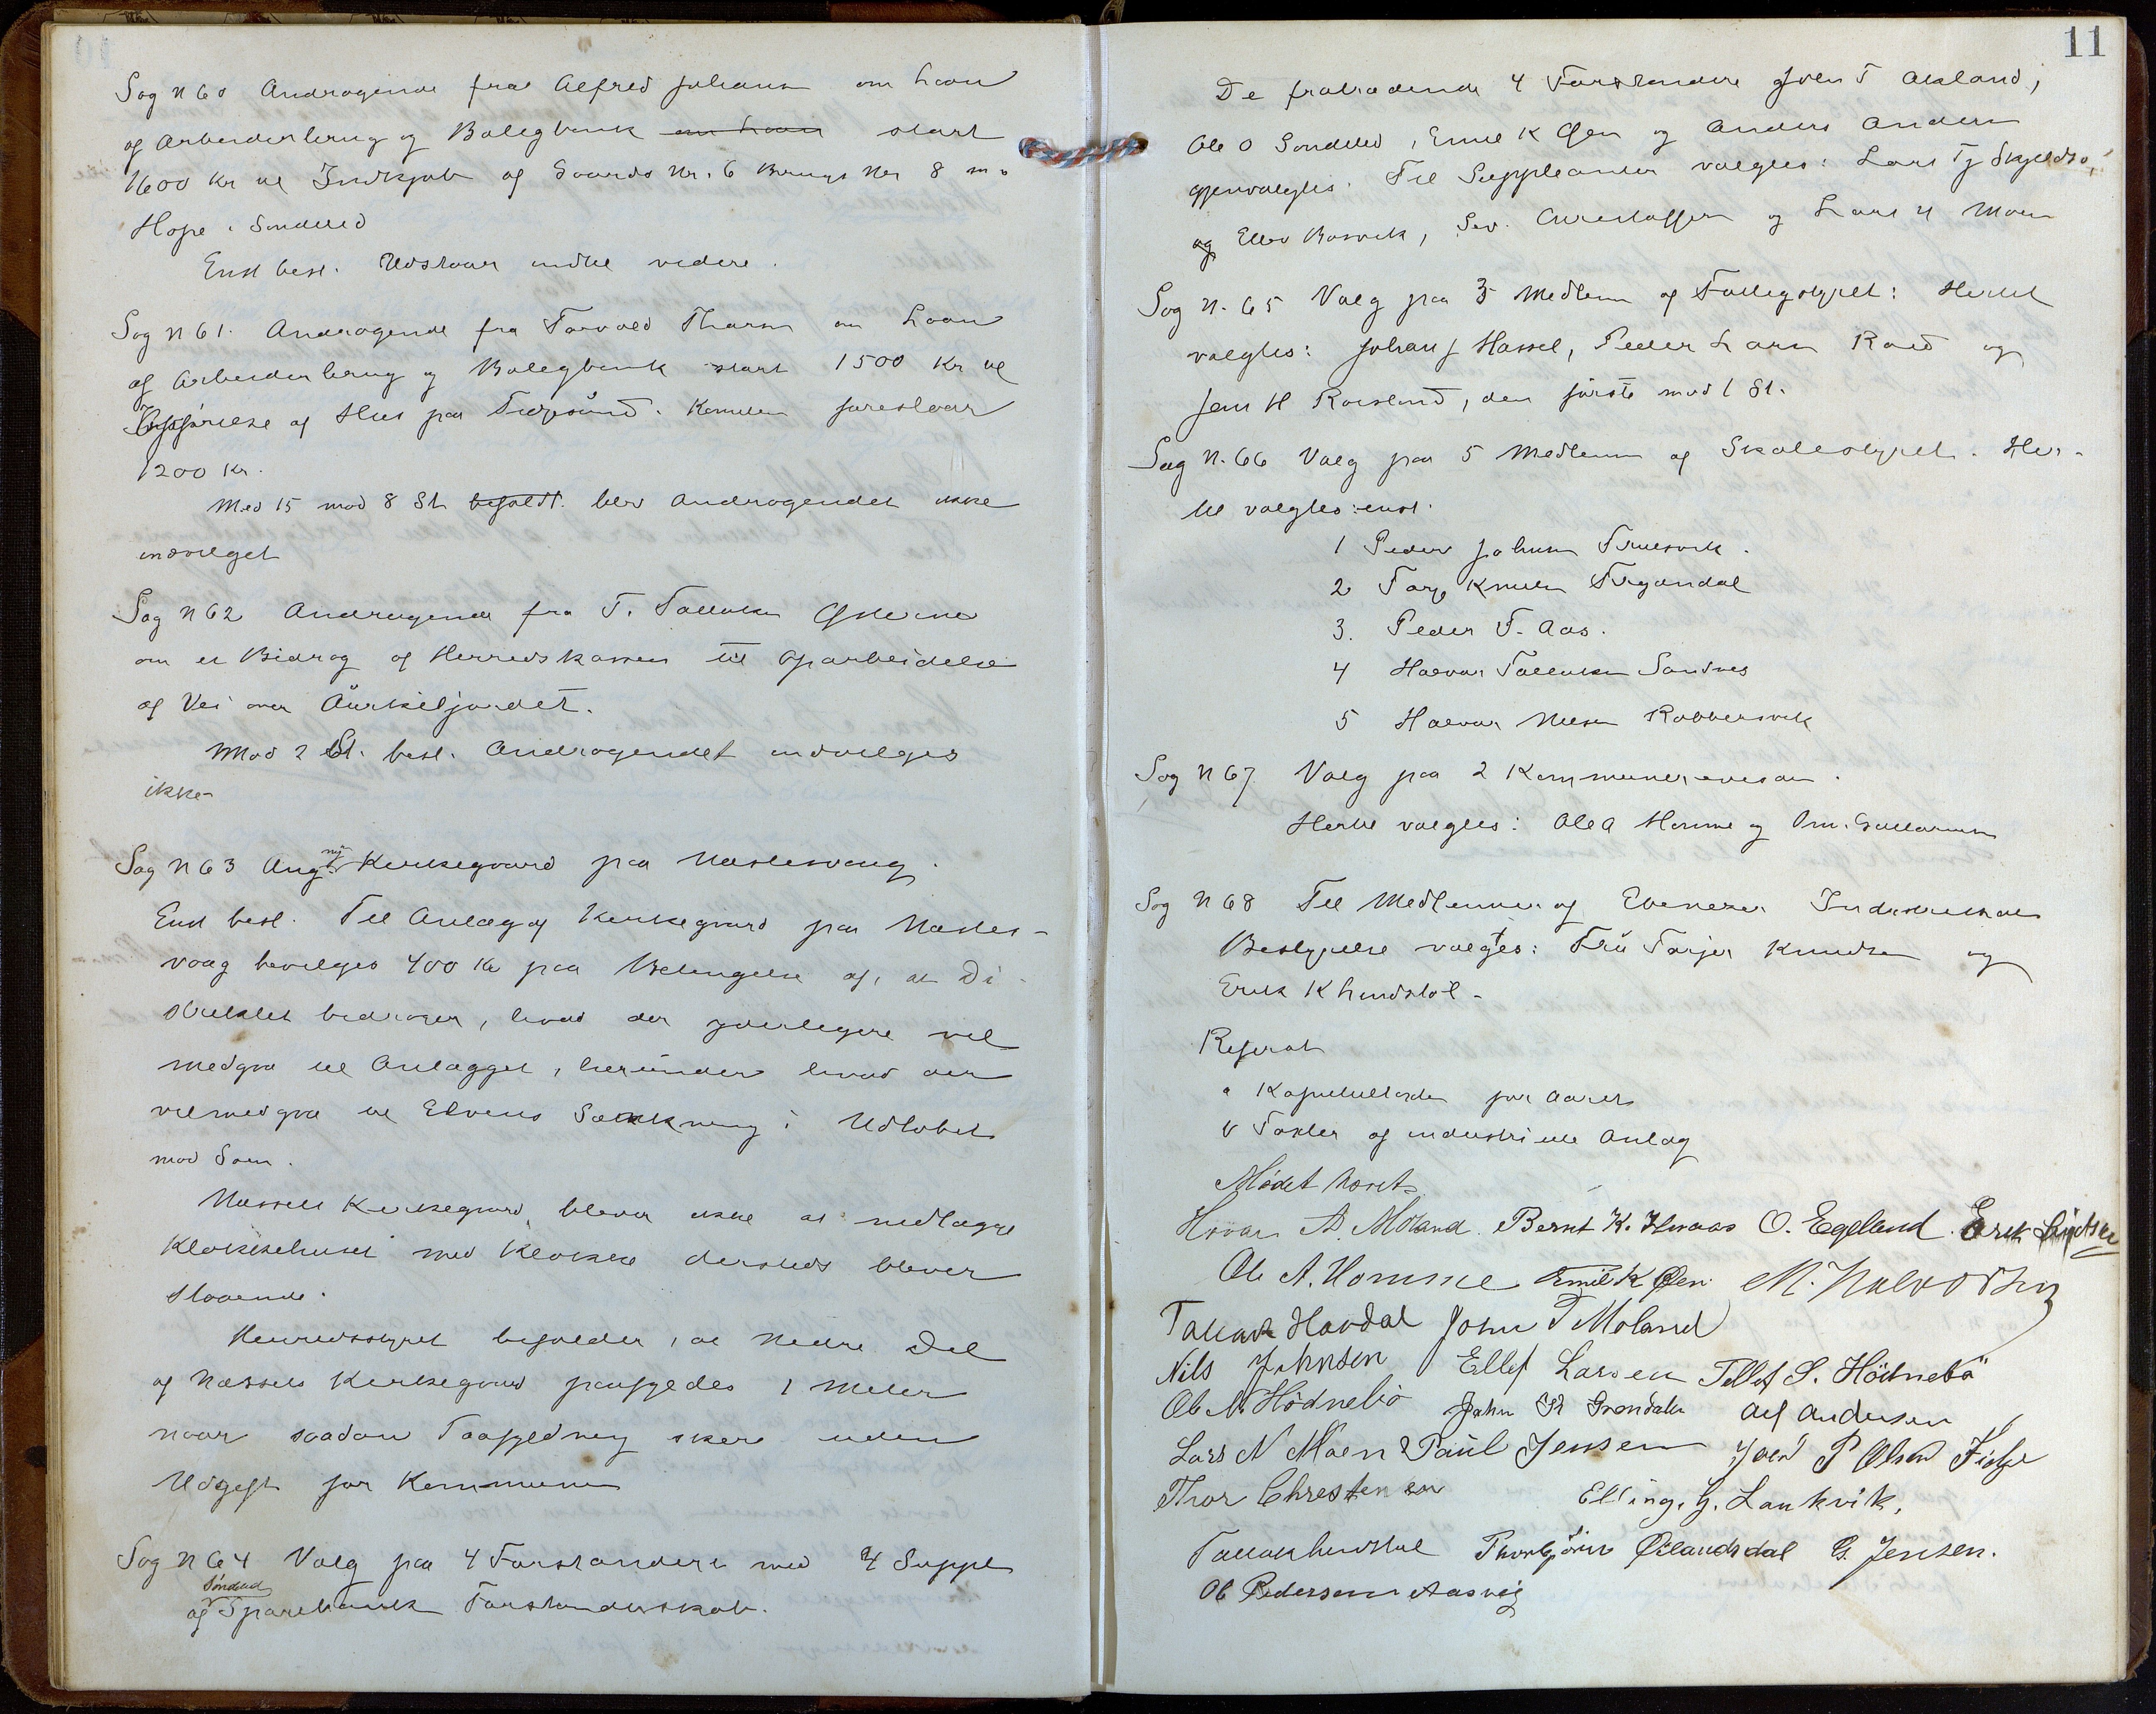 Sag N 60 Andragende fra Alfred Johansen om Laan
af Arbeiderbrug og Boligbank om Laan stort
1600 Kr til Indkjøb af Gaards Nr. 6 Brugs Nr 8 m.
Hope i Søndeled
Enst besl. Udstaar indtil videre.
Sag N 61. Andragende fra Torvald Thorsen om Laan
af Arbeiderbrug og Boligbank stort 1500 Kr til
Opførelse af Hus paa Furøsund. Komiteen foreslaar
1200 Kr.
Med 15 mod 8 St. blev Andragendet ikke
indvilget
Sag N 62 Andragende fra T. Tallaksen
om et Bidrag af Herredskassen til Oparbeidelse
af Vei over Aurkiljordet.
Mod 2 St. besl. Andragendet indvilges
ikke
Sag N 63 Ang. ny Kirkegaard paa Næslesvaag.
Enst besl. Til Anlæg af Kirkegaard paa Næsles-
vaag bevilges 400 Kr paa Betingelse af, at Di-
striktet bidrager, hvad der yderligere vil
medgaa til Anlægget, herunder hvad der
vil medgaa til Elvens Sænkning i Udløbet
mod Søen.
Næssets Kirkegaard bliver ikke at nedlægge
Klokkehuset med Klokke dersteds bliver
staaende.
Herredsstyret befolder, at Nedre Del
af Næssets Kirkegaard paafyldes 1 Meter
naar saadan Paafyldning skjer uden
Udgift for Kommunen
Sag N 64 Valg paa 4 Forstandere med 4 Suppl
af Søndeled Sparebanks Forstanderskab.
11
De fratrædende 4 Forstandere John T Akland,
Ole O Søndeled, Emil K Øen og Anders Andersen
gjenvalgtes. Til Suppleanter valgtes: Lars Tj Skjeldsø,
og Ellev Bosvik, Sev. Christoffersen og Lars N Moen
Sag N. 65 Valg paa 3 Medlem af Fattigstyret: Hertil
valgtes: Johan J Hassel, Peder Larsen Roed og
Jens H Røisland, den første mod 1 St.
Sag N. 66 Valg paa 5 Medlemmer af Skolestyret. Her-
til valgtes: enst.
1 Peder Johnsen
2 Torje Knutsen Trydal
3. Peder T. Aas.
4 Halvor Tallaksen Sandnes
5 Halvor Nilsen Robbersvik
Sag N 67 Valg paa 2 Kommunerevisorer.
Hertil valgtes: Ole A Homme og Om. Gullaksen
Sag N 68 Til Medlemmer af Ebenezer Industriskoles
Bestyrelse valgtes: Fru Torjer Knudsen og
Erik K Lindstøl.
Referat
a Kapiteltakster for Aaret
b Takster af industrielle Anlæg
Mødet hævet
Halvor A. Moland. Bernt K. Hvaas O. Egeland. Erik Lindstøl
Ole A. Homme Emil K Øen. M. Halvorsen
Tallak Havdal John T Moland
Nils Johnsen Ellef Larsen Tellef S. Hødnebø
Ole N Hødnebø John K Grøndalen Alf Andersen
Lars N Moen Paul Jensen Joen P Olsen Fidje
Thor Christensen Elling. G. Lankvik,
Tallak Lindstøl Thorbjørn Øslandsdal G. Jensen.
Ole Pedersen Aasvig